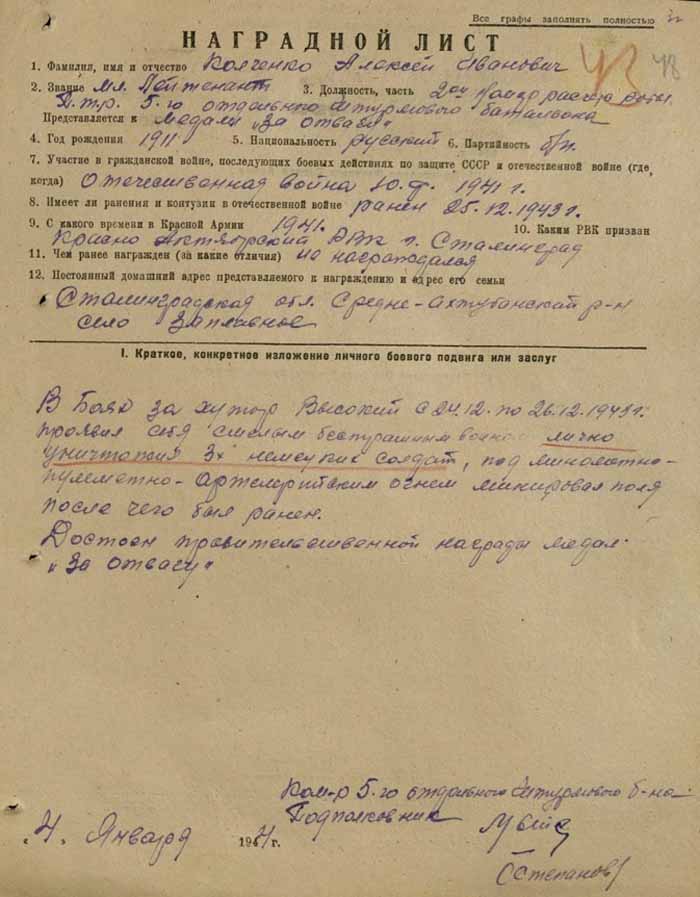 Все графы заполнять полностью
НАГРАДНОЙ ЛИСТ
43 48
1. Фамилия, имя и отчество Колченко Алексей Иванович
2. Звание Мл. Лейтенант 3. Должность, часть 2ой роты
П.т.р. 5-го отдельного штурмового батальона
Представляется к медали „За отвагу"
4. Год рождения 1911 5. Национальность русский 6. Партийность б/п.
7. Участие в гражданской войне, последующих боевых действиях по защите СССР и отечественной войне (где,
когда) Отечественная война Ю.ф. 1941 г.
8. Имеет ли ранения и контузии в отечественной войне ранен 25.12.1943 г.
9. С какого времени в Красной Армии 1941. 10. Каким РВК призван
Красно Октябрьский РВК г. Сталинград
11. Чем ранее награжден (за какие отличия) не награждался
12. Постоянный домашний адрес представляемого к награждению и адрес его семьи
Сталинградская обл. Средне-Ахтубанский р-н
село Заплавное
I. Краткое, конкретное изложение личного боевого подвига или заслуг
В Боях за хутор Высокий с 24.12. по 26.12.1943 г.
проявил себя смелым бесстрашным воином лично
уничтожил 3х немецких солдат, под минометно-
пулеметно-артелерийским огнем минировал поля
после чего был ранен.
Достоен правительственной награды медал.
„За отвагу"
Ком-р 5-го отдельного Штурмового б-на
Подполковник
„4„ Января 1944 г.
(Степанов)